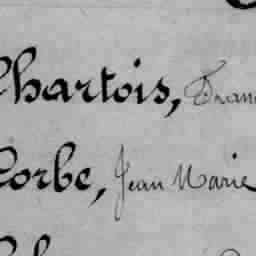 Chartois, Fran
Corbe, Jean Marie